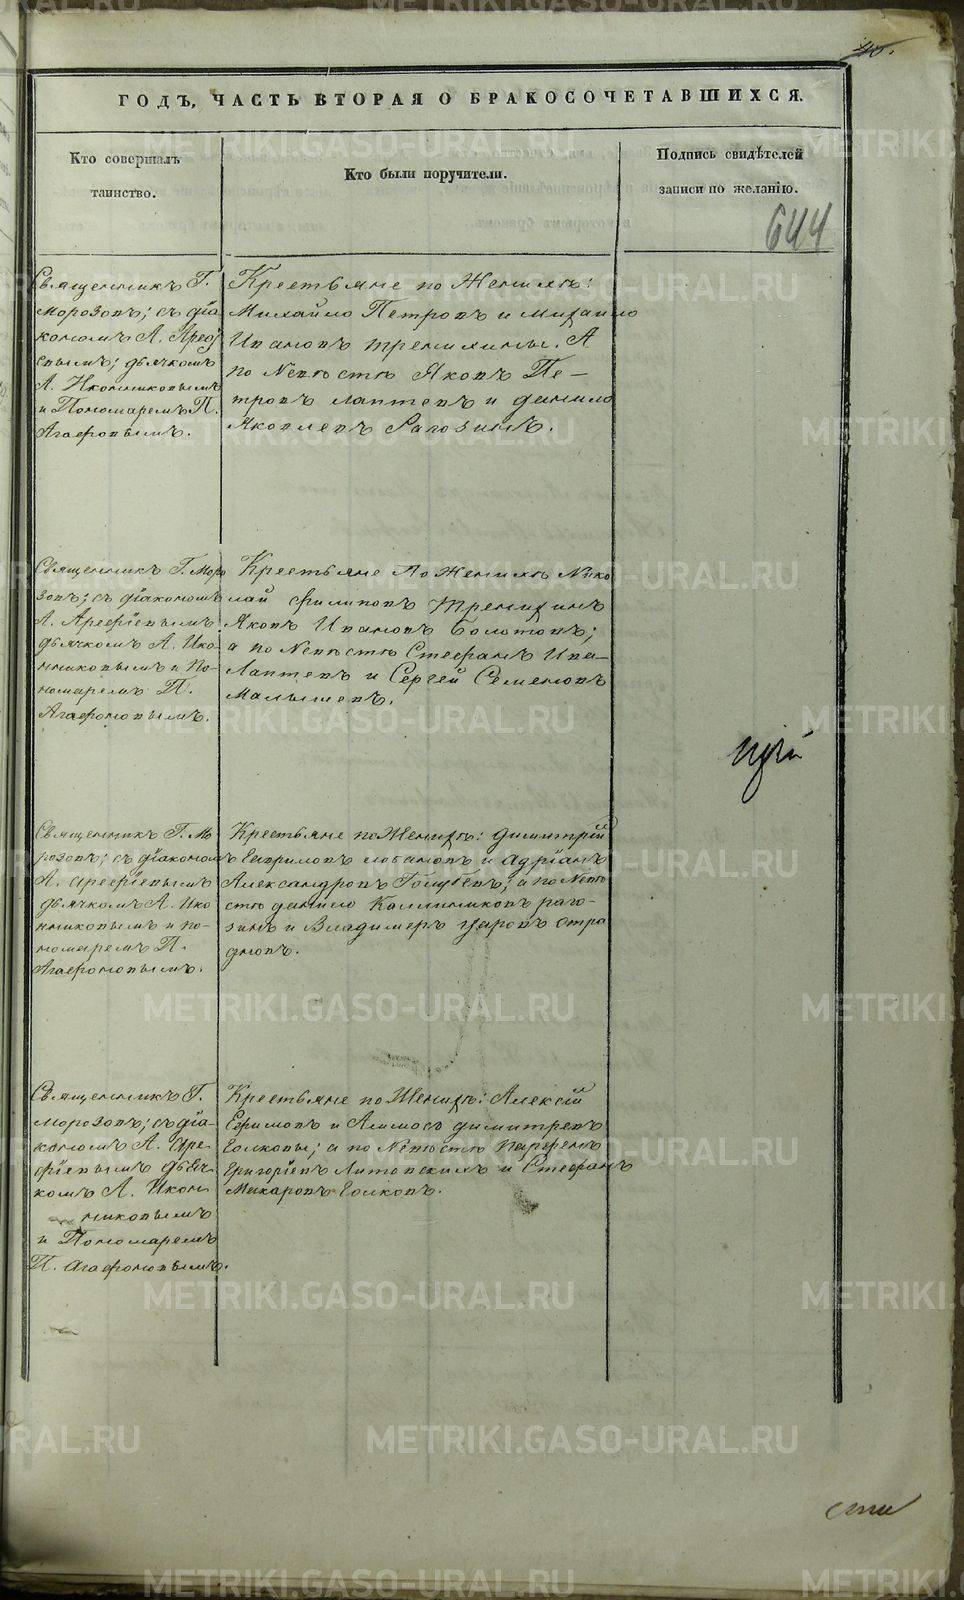 40.
ГОДЪ, ЧАСТЬ ВТОРАЯ О БРАКОСОЧЕТАВШИХСЯ.
Кто совершалъ
таинство.
Кто были поручители.
Подпись свидѣтелей
записи по желанію.
644
Священникъ Г.
Морозовъ; съ діа-
кономъ А. Ареѳ
евымъ; дьячкомъ
А. Иконниковымъ
и Пономаремъ П.
Агаѳоновымъ.
Крестьяне по Женихѣ:
Михайло Петровъ и Михайло
Ивановъ Тренихины. А
по Невѣстѣ Яковъ Пе-
тровъ Лаптевъ и Данило
Яковлевъ Рагозинъ.
Священникъ Г. Моро
зовъ; съ діакономъ
А. Ареѳіевымъ
дьячкомъ А. Ико-
нниковымъ и По-
номаремъ П.
Агаѳоновымъ.
Крестьяне по Женихѣ Нико
лай Филиповъ Тренихинъ
Яковъ Ивановъ Болотовъ;
а по Невѣстѣ Стефанъ Ива-
Лаптевъ и Сергей Семеновъ
Малышевъ.
Священникъ Г. Мо
розовъ; съ діакономъ
А. Ареѳіевымъ
дьячкомъ А. Ико
нниковымъ и по-
номаремъ П.
Агаѳоновымъ.
Крестьяне по Женихѣ: Димитрій
Гавриловъ Лобановъ и Адріанъ
Александровъ Голубевъ; а по Невѣ
стѣ Данило Каллиниковъ Раго-
зинъ и Владимеръ
дновъ.
Священникъ Г.
Морозовъ; съ діа-
кономъ А. Аре-
ѳіевымъ дьяч-
комъ А. Икон
никовымъ
и Пономаремъ
П. Агаѳоновымъ.
Крестьяне по Женихѣ: Алексій
Ефимовъ и Аммосъ Димитревъ
Голковы; а по Невѣстѣ Парфенъ
Григоріевъ Литовскихъ и Стефанъ
Макаровъ Голковъ.
METRIKI.GASO-URAL.RU